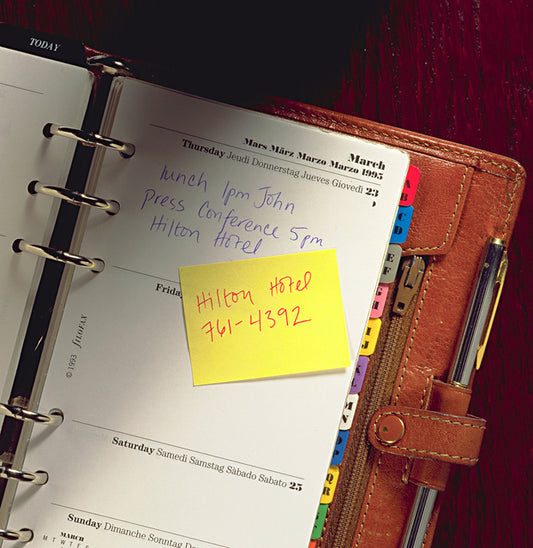 TODAY
March
Mars März Marzo Marzo 1995
Thursday Jeudi Donnerstag Jueves Giovedì 23
lunch 1pm John
Press Conference 5pm
Hilton Hotel
Frida
Hilton Hotel
761-4392
© 1993 fILOFAX
Saturday Samedi Samstag Sàbado Sabato 25
Sunday Dimanche Sonntag Do
MARCH
M T W T F S
A
B
C
D
E
F
G
H
I
J
K
L
M
N
Q
R